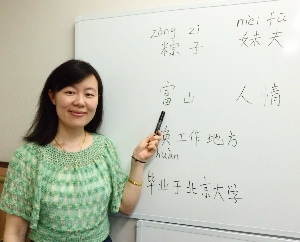 zòng zi mèi fū
粽子 妹夫
富山 人情
换工作地方
huàn
毕业于北京大学